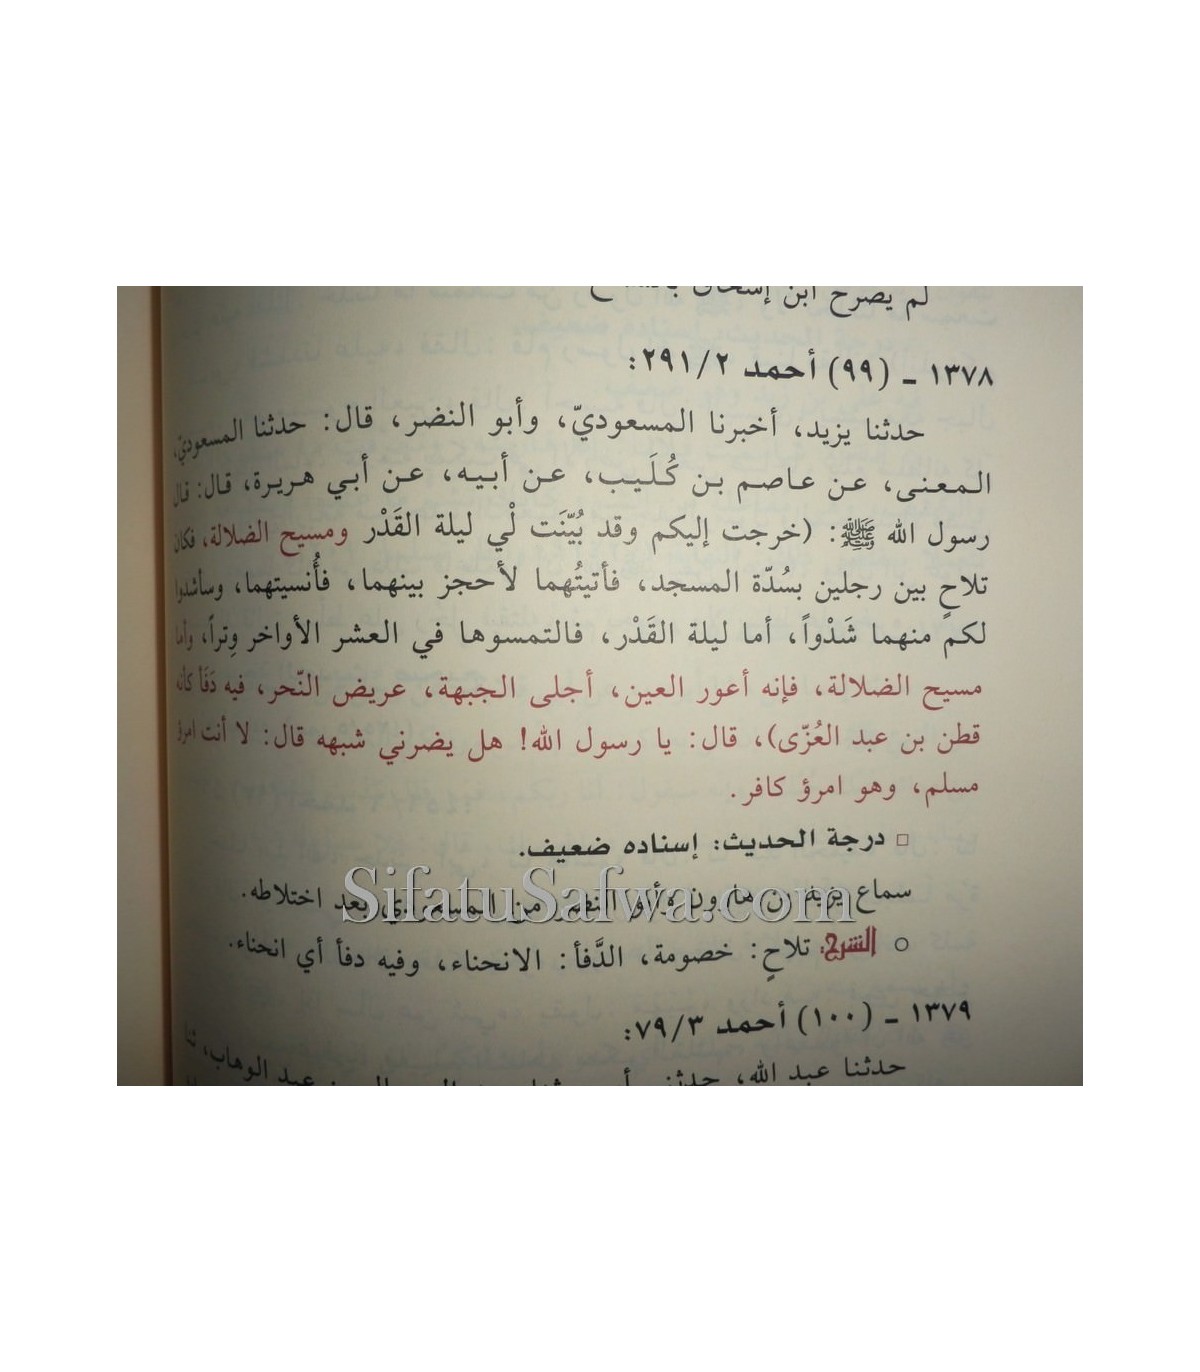 لم يصرح ابن إسحاق
١٣٧٨ ـ (٩٩) أحمد ٢٩١/٢:
حدثنا يزيد، أخبرنا المسعوديّ، وأبو النضر، قال: حدثنا المسعوديّ،
المعنى، عن عاصم بن كُلَيب، عن أبيه، عن أبي هريرة، قال: قال
رسول الله ﷺ: (خرجت إليكم وقد بُيّنَت لْي ليلة القَدْر ومسيح الضلالة، فكان
تلاحٍ بين رجلين بسُدّة المسجد، فأتيتُهما لأحجز بينهما، فأُنسيتهما، وسأشدوا
لكم منهما شَدْواً، أما ليلة القَدْر، فالتمسوها في العشر الأواخر وِتراً، وأما
مسيح الضلالة، فإنه أعور العين، أجلى الجبهة، عريض النّحر، فيه دَفَأ كأنه
قطن بن عبد العُزّى)، قال: يا رسول الله! هل يضرني شبهه قال: لا أنت امرؤ
مسلم، وهو امرؤ كافر.
□ درجة الحديث: إسناده ضعيف.
سماع يزيد بن هارون وأبو النضر من المسعودي بعد اختلاطه.
SifatuSafwa.com
○ الشرح: تلاحٍ: خصومة، الدَّفأ: الانحناء، وفيه دفأ أي انحناء.
١٣٧٩ ـ (١٠٠) أحمد ٧٩/٣:
حدثنا عبد الله، حدثني عبد الوهاب، ثنا